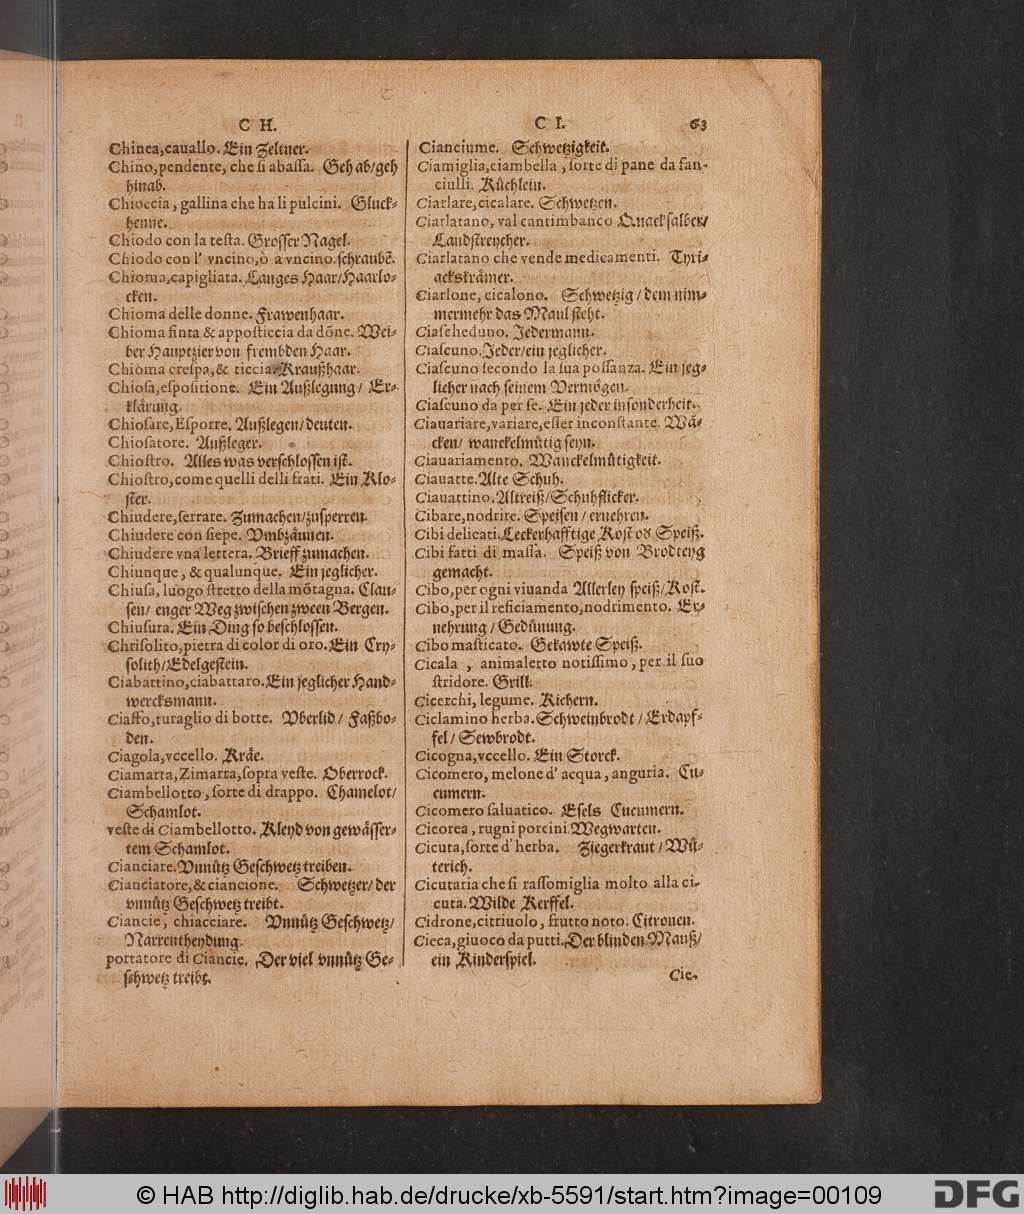 C H.
Chinea,cauallo. Ein Zeltner.
Chino,pendente, che si abaſſa. Geh ab/geh
hinab.
Chioccia, gallina che ha li pulcini. Gluck-
henne.
Chiodo con la teſta. Groſſer Nagel.
Chiodo con l' vncino,ò a vncino. ſchraubē.
Chioma,capigliata. Langes Haar/Haarlo-
cken.
Chioma delle donne. Frawenhaar.
Chioma finta & appoſticcia da dōne. Wei-
ber Hauptzier von frembden Haar.
Chioma creſpa,& riccia. Kraußhaar.
Chioſa,eſpoſitione. Ein Außlegung/ Er-
klaͤrung.
Chioſare,Eſporre. Außlegen/deuten.
Chioſatore. Außleger.
Chioſtro. Alles was verſchloſſen iſt.
Chioſtro,come quelli delli frati. Ein Klo-
ſter.
Chiudere,ſerrare. Zumachen/zuſperren.
Chiudere con ſiepe. Vmbzaͤunen.
Chiudere vna lettera. Brieff zumachen.
Chiunque, & qualunque. Ein jeglicher.
Chiuſa, luogo ſtretto della mōtagna. Clau-
ſen/ enger Weg zwiſchen zween Bergen.
Chiuſura. Ein Ding ſo beſchloſſen.
Chriſolito,pietra di color di oro. Ein Cry-
ſolith/Edelgeſtein.
Ciabattino,ciabattaro. Ein jeglicher Hand-
wercksmann.
Ciaffo,turaglio di botte. Vberlid/ Faßbo-
den.
Ciagola,vccello. Kraͤe.
Ciamarra,Zimarra,ſopra veſte. Oberrock.
Ciambellotto, ſorte di drappo. Chamelot/
Schamlot.
veſte di Ciambellotto. Kleyd von gewaͤſſer-
tem Schamlot.
Cianciare. Vnnuͤtz Geſchwetz treiben.
Cianciatore,& ciancione. Schwetzer/ der
vnnuͤtz Geſchwetz treibt.
Ciancie, chiacciare. Vnnuͤtz Geſchwetz/
Narrentheydung.
portatore di Ciancie. Der viel vnnuͤtz Ge-
ſchwetz treibt.
C I. 63
Cianciume. Schwetzigkeit.
Ciamiglia,ciambella, ſorte di pane da fan-
ciulli. Kuͤchlein.
Ciarlare,cicalare. Schwetzen.
Ciarlatano, val cantimbanco Quackſalber/
Landſtreycher.
Ciarlatano che vende medicamenti. Tyri-
ackskraͤmer.
Ciarlone, cicalono. Schwetzig/ dem nim-
mermehr das Maul ſteht.
Ciaſcheduno. Jedermann.
Ciaſcuno. Jeder/ein jeglicher.
Ciaſcuno ſecondo la ſua poſſanza. Ein jeg-
licher nach ſeinem Vermoͤgen.
Ciaſcuno da per ſe. Ein jeder inſonderheit.
Ciauariare,variare,eſſer inconſtante. Waͤ-
cken/ wanckelmuͤtig ſeyn.
Ciauariamento. Wanckelmuͤtigkeit.
Ciauatte. Alte Schuh.
Ciauattino. Altreiß/Schuhflicker.
Cibare,nodrire. Speiſen/ ernehren.
Cibi delicati. Leckerhafftige Koſt od Speiß.
Cibi fatti di maſſa. Speiß von Brodteyg
gemacht.
Cibo,per ogni viuanda Allerley ſpeiß/Koſt.
Cibo,per il reficiamento,nodrimento. Er-
nehrung/ Geduͤnung.
Cibo maſticato. Gekawte Speiß.
Cicala, animaletto notiſſimo, per il ſuo
ſtridore. Grill.
Cicerchi, legume. Kichern.
Ciclamino herba. Schweinbrodt/ Erdapf-
fel/ Sewbrodt.
Cicogna,vccello. Ein Storck.
Cicomero, melone d' acqua, anguria. Cu-
cumern.
Cicomero ſaluatico. Eſels Cucumern.
Cicorea, rugni porcini. Wegwarten.
Cicuta,ſorte d' herba. Ziegerkraut/ Wuͤ-
terich.
Cicutaria che ſi raſſomiglia molto alla ci-
cuta. Wilde Kerffel.
Cidrone,citriuolo, frutto noto. Citronen.
Cieca,giuoco da putti. Der blinden Mauß/
ein Kinderſpiel.
Cie-
© HAB http://diglib.hab.de/drucke/xb-5591/start.htm?image=00109
DFG